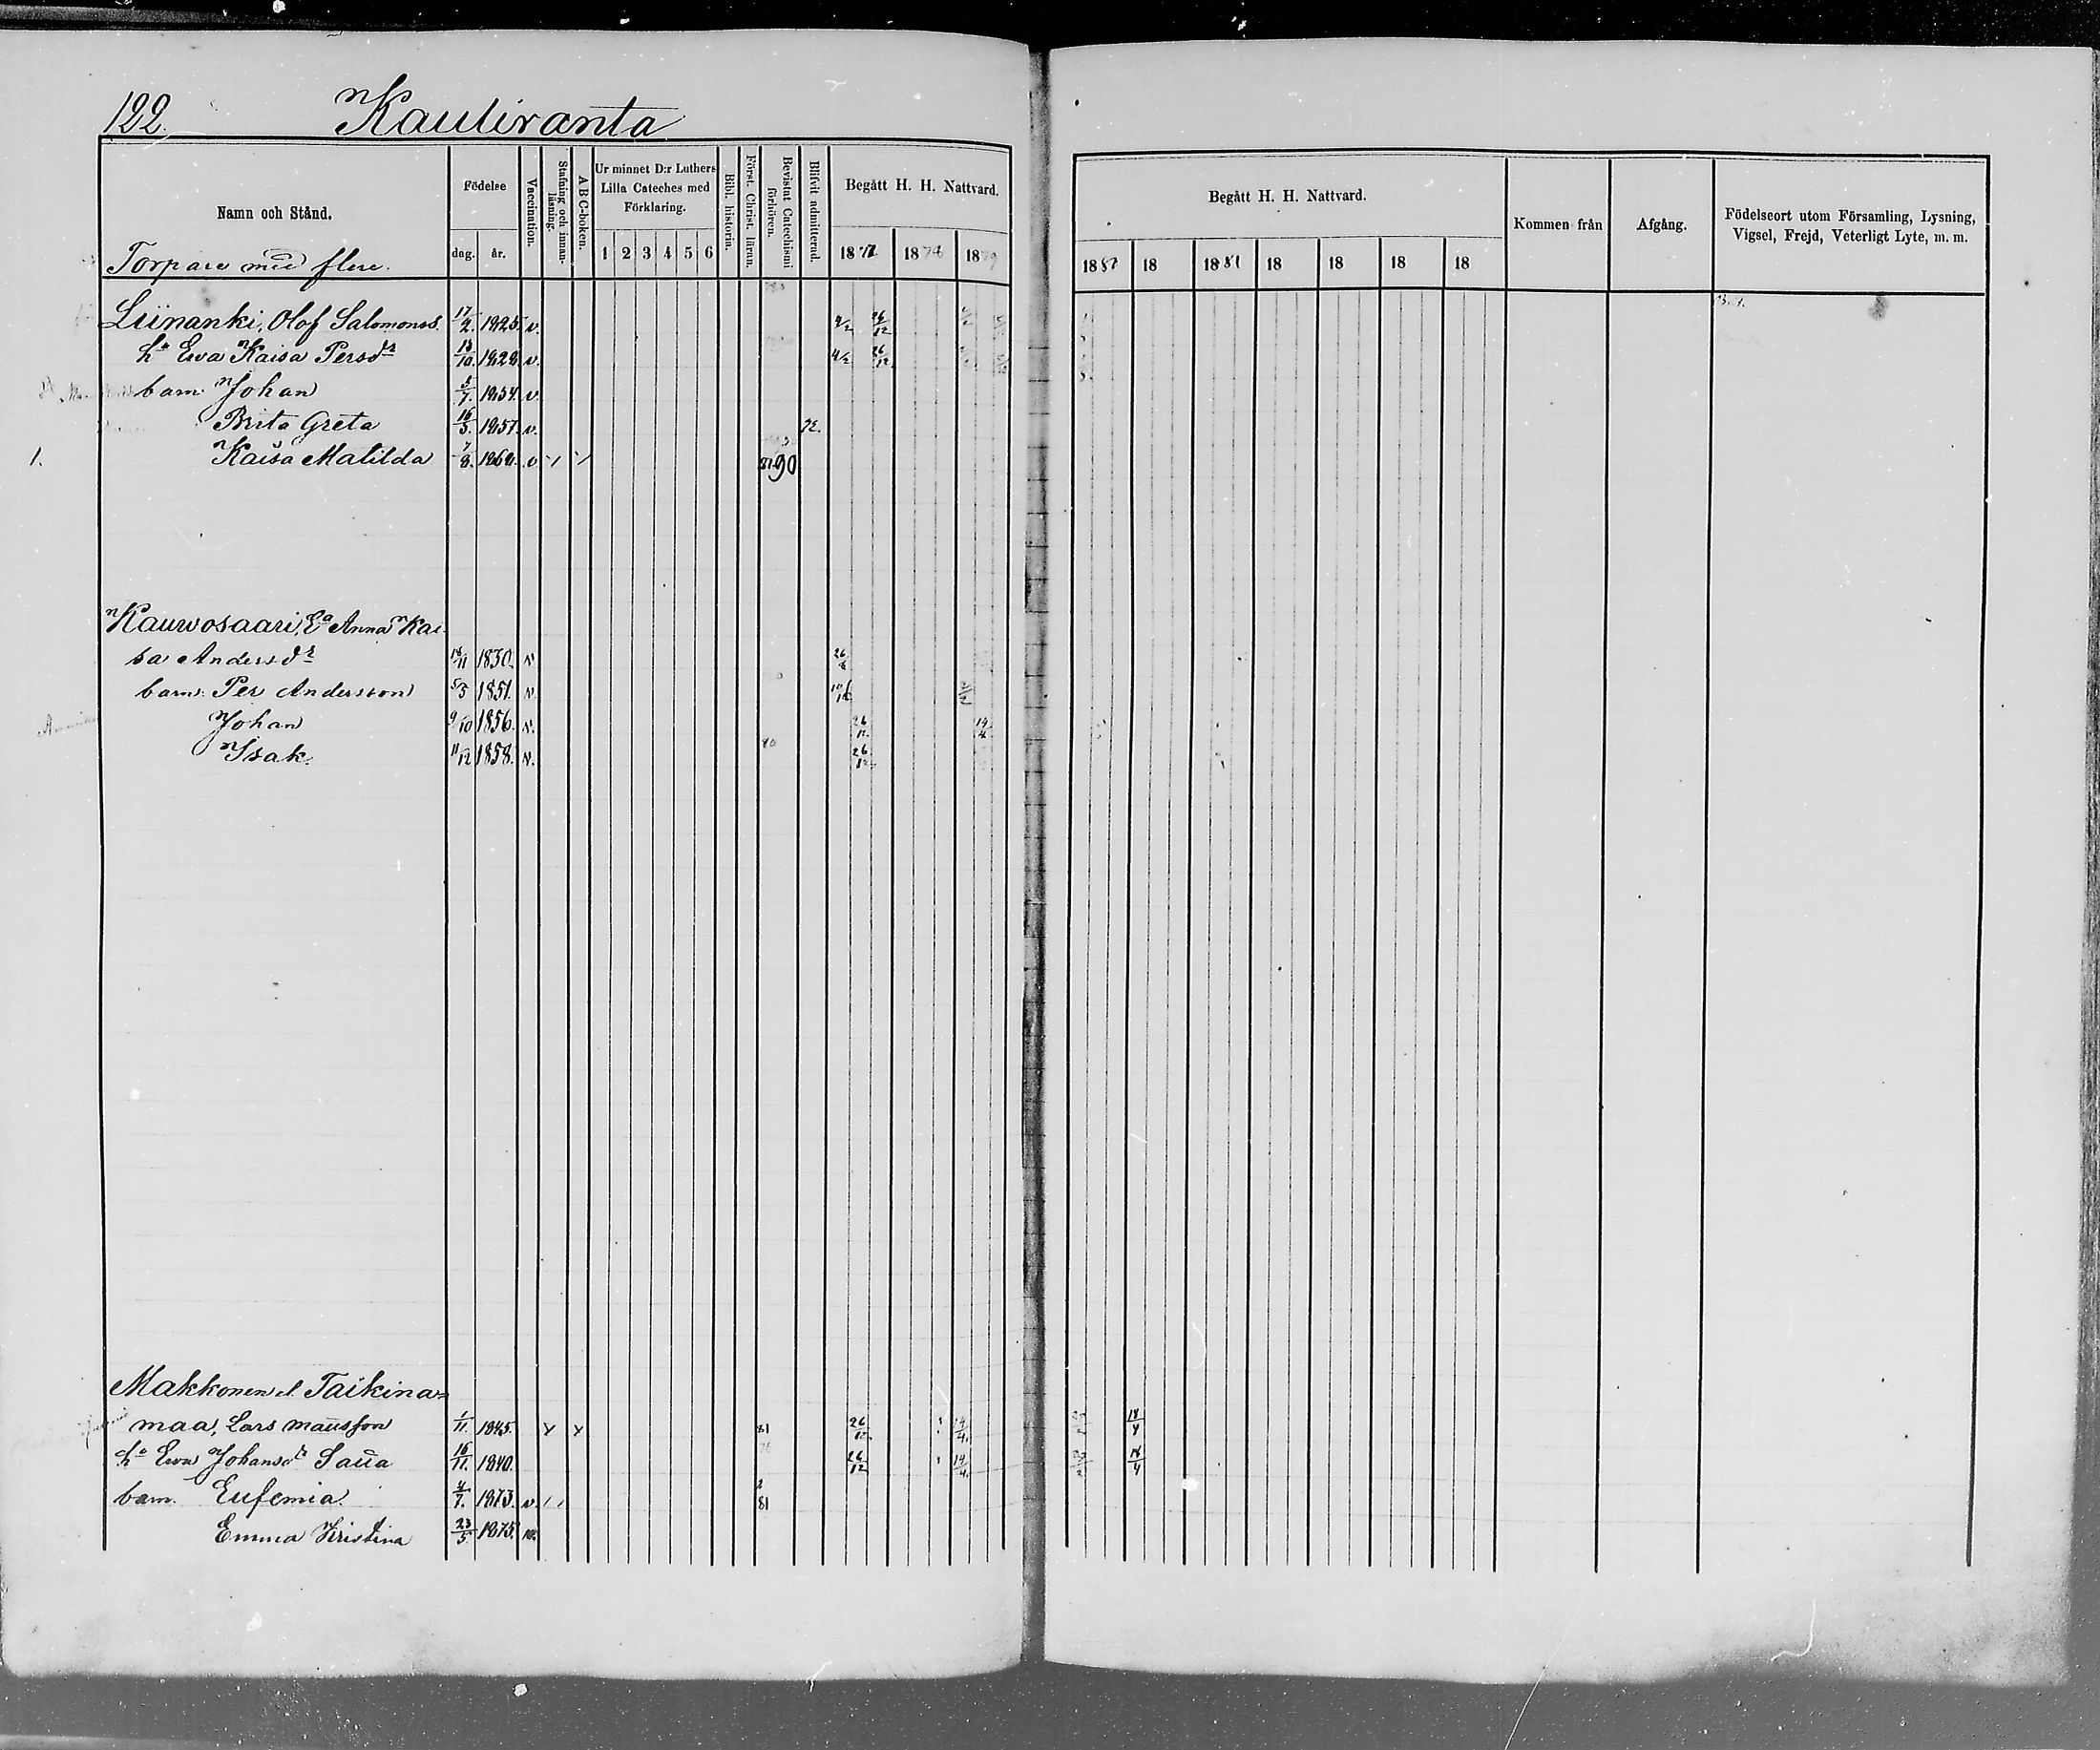 122. Kauliranta
Namn och Stånd.
Födelse
dag. år.
Vaccination.
Stafning och innanläsning.
A B C-boken.
Ur minnet D:r Luthers Lilla Cateches med Förklaring.
1 2 3 4 5 6
Bibl. historia.
Först. Christ. läran.
Bevistat Catechismi förhören.
Blifvit admitterad.
Begått H. H. Nattvard.
1877 1878 1879
Begått H. H. Nattvard.
18 18 1881 18 18 18 18
Kommen från
Afgång.
Födelseort utom Församling, Lysning, Vigsel, Frejd, Veterligt Lyte, m. m.
Torpare med flere.
Liinanki, Olof Salomonss. 17/2. 1825. v. 4/2 26/12
h:u Ewa Kaisa Persdr 13/10. 1828. v. 4/2 26/12
barn: Johan 5/7. 1854. v.
Brita Greta 16/5. 1857. v.
1. Kaisa Matilda 7/8. 1868. v 90
Kauwosaari, Ea Anna Kai-
sa Andersdr 18/11 1830. v 26
barn: Per Andersson 5/5 1851. v.
Johan 9/10 1856. v. 26/12 14/4
Isak. 11/12 1858. v. 80 26/12
Makkonen el. Taikina=
maa, Lars Mausson 1/11. 1845. 81 26/12 14/4 18/4
h:u Ewa Johansdr Saua 16/11. 1840. 26/12 14/4 18/4
barn. Eufemia. 4/7. 1873. v. 81
Emma Kristina 23/5. 1875. v.